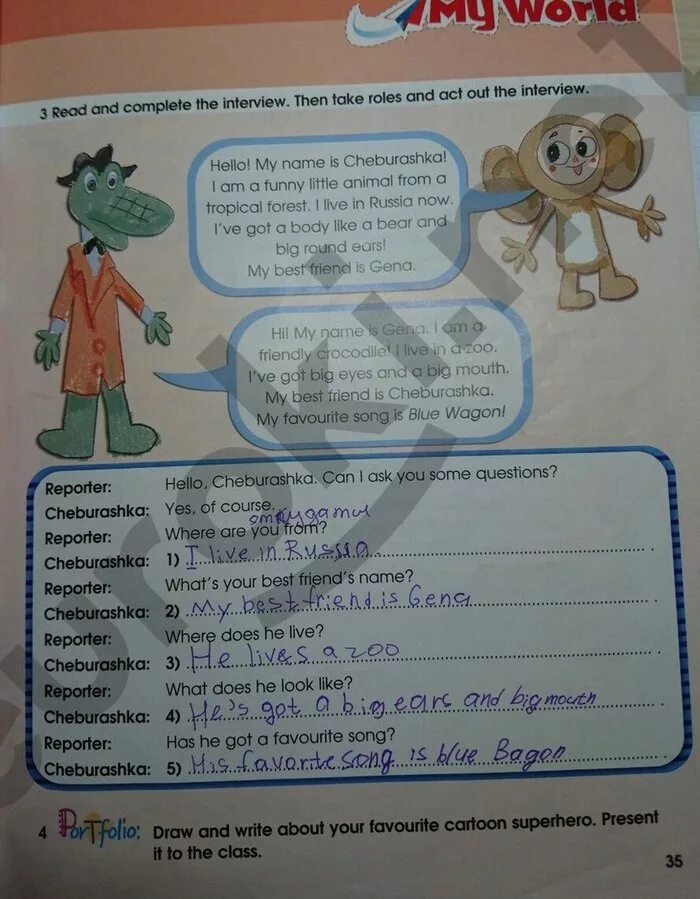 My World
3 Read and complete the interview. Then take roles and act out the interview.
Hello! My name is Cheburashka!
I am a funny little animal from a
tropical forest. I live in Russia now.
I've got a body like a bear and
big round ears!
My best friend is Gena.
Hi! My name is Gena. I am a
friendly crocodile! I live in a zoo.
I've got big eyes and a big mouth.
My best friend is Cheburashka.
My favourite song is Blue Wagon!
Reporter: Hello, Cheburashka. Can I ask you some questions?
Cheburashka: Yes, of course.
Reporter: Where are you from?
Cheburashka: 1) I live in Russia
Reporter: What's your best friend's name?
Cheburashka: 2) My best friend is Gena
Reporter: Where does he live?
Cheburashka: 3) He lives a zoo
Reporter: What does he look like?
Cheburashka: 4) He's got a big ears and big mouth
Reporter: Has he got a favourite song?
Cheburashka: 5) His favorite song is blue Bagon
4 Portfolio: Draw and write about your favourite cartoon superhero. Present
it to the class.
35